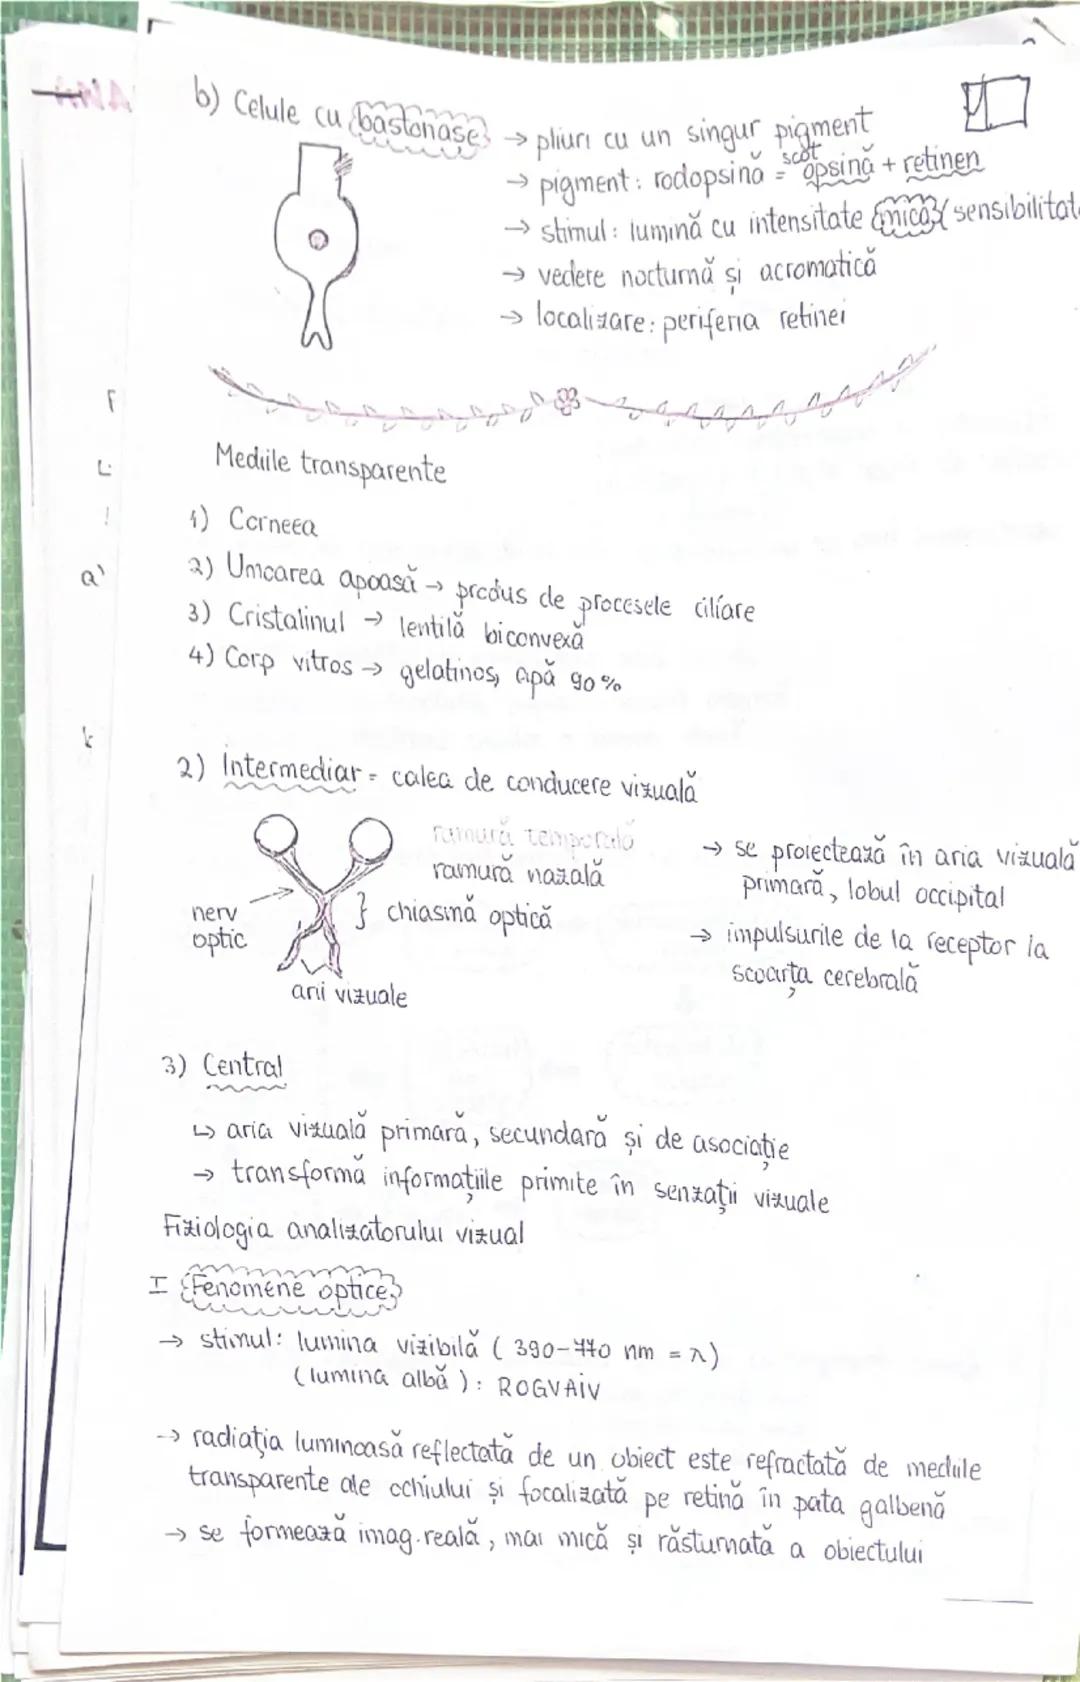 b) Celule cu bastonașe
→ pliuri cu un singur pigment
→ pigment: rodopsină = scotopsină + retinen
→ stimul: lumină cu intensitate mică (sensibilitate
→ vedere nocturnă și acromatică
→ localizare: periferia retinei
Mediile transparente
1) Corneea
2) Umoarea apoasă → produs de procesele ciliare
3) Cristalinul → lentilă biconvexă
4) Corp vitros → gelatinos, apă 90%
2) Intermediar = calea de conducere vizuală
ramură temporală
ramură nazală
} chiasmă optică
nerv
optic
arii vizuale
→ se proiectează în aria vizuală
primară, lobul occipital
→ impulsurile de la receptor la
scoarța cerebrală
3) Central
↳ aria vizuală primară, secundară și de asociație
→ transformă informațiile primite în senzații vizuale
Fiziologia analizatorului vizual
I Fenomene optice
→ stimul: lumina vizibilă ( 390-770 nm = λ)
(lumina albă ): ROGVAIV
→ radiația luminoasă reflectată de un obiect este refractată de mediile
transparente ale ochiului și focalizată pe retină în pata galbenă
→ se formează imag. reală, mai mică și răsturnată a obiectului